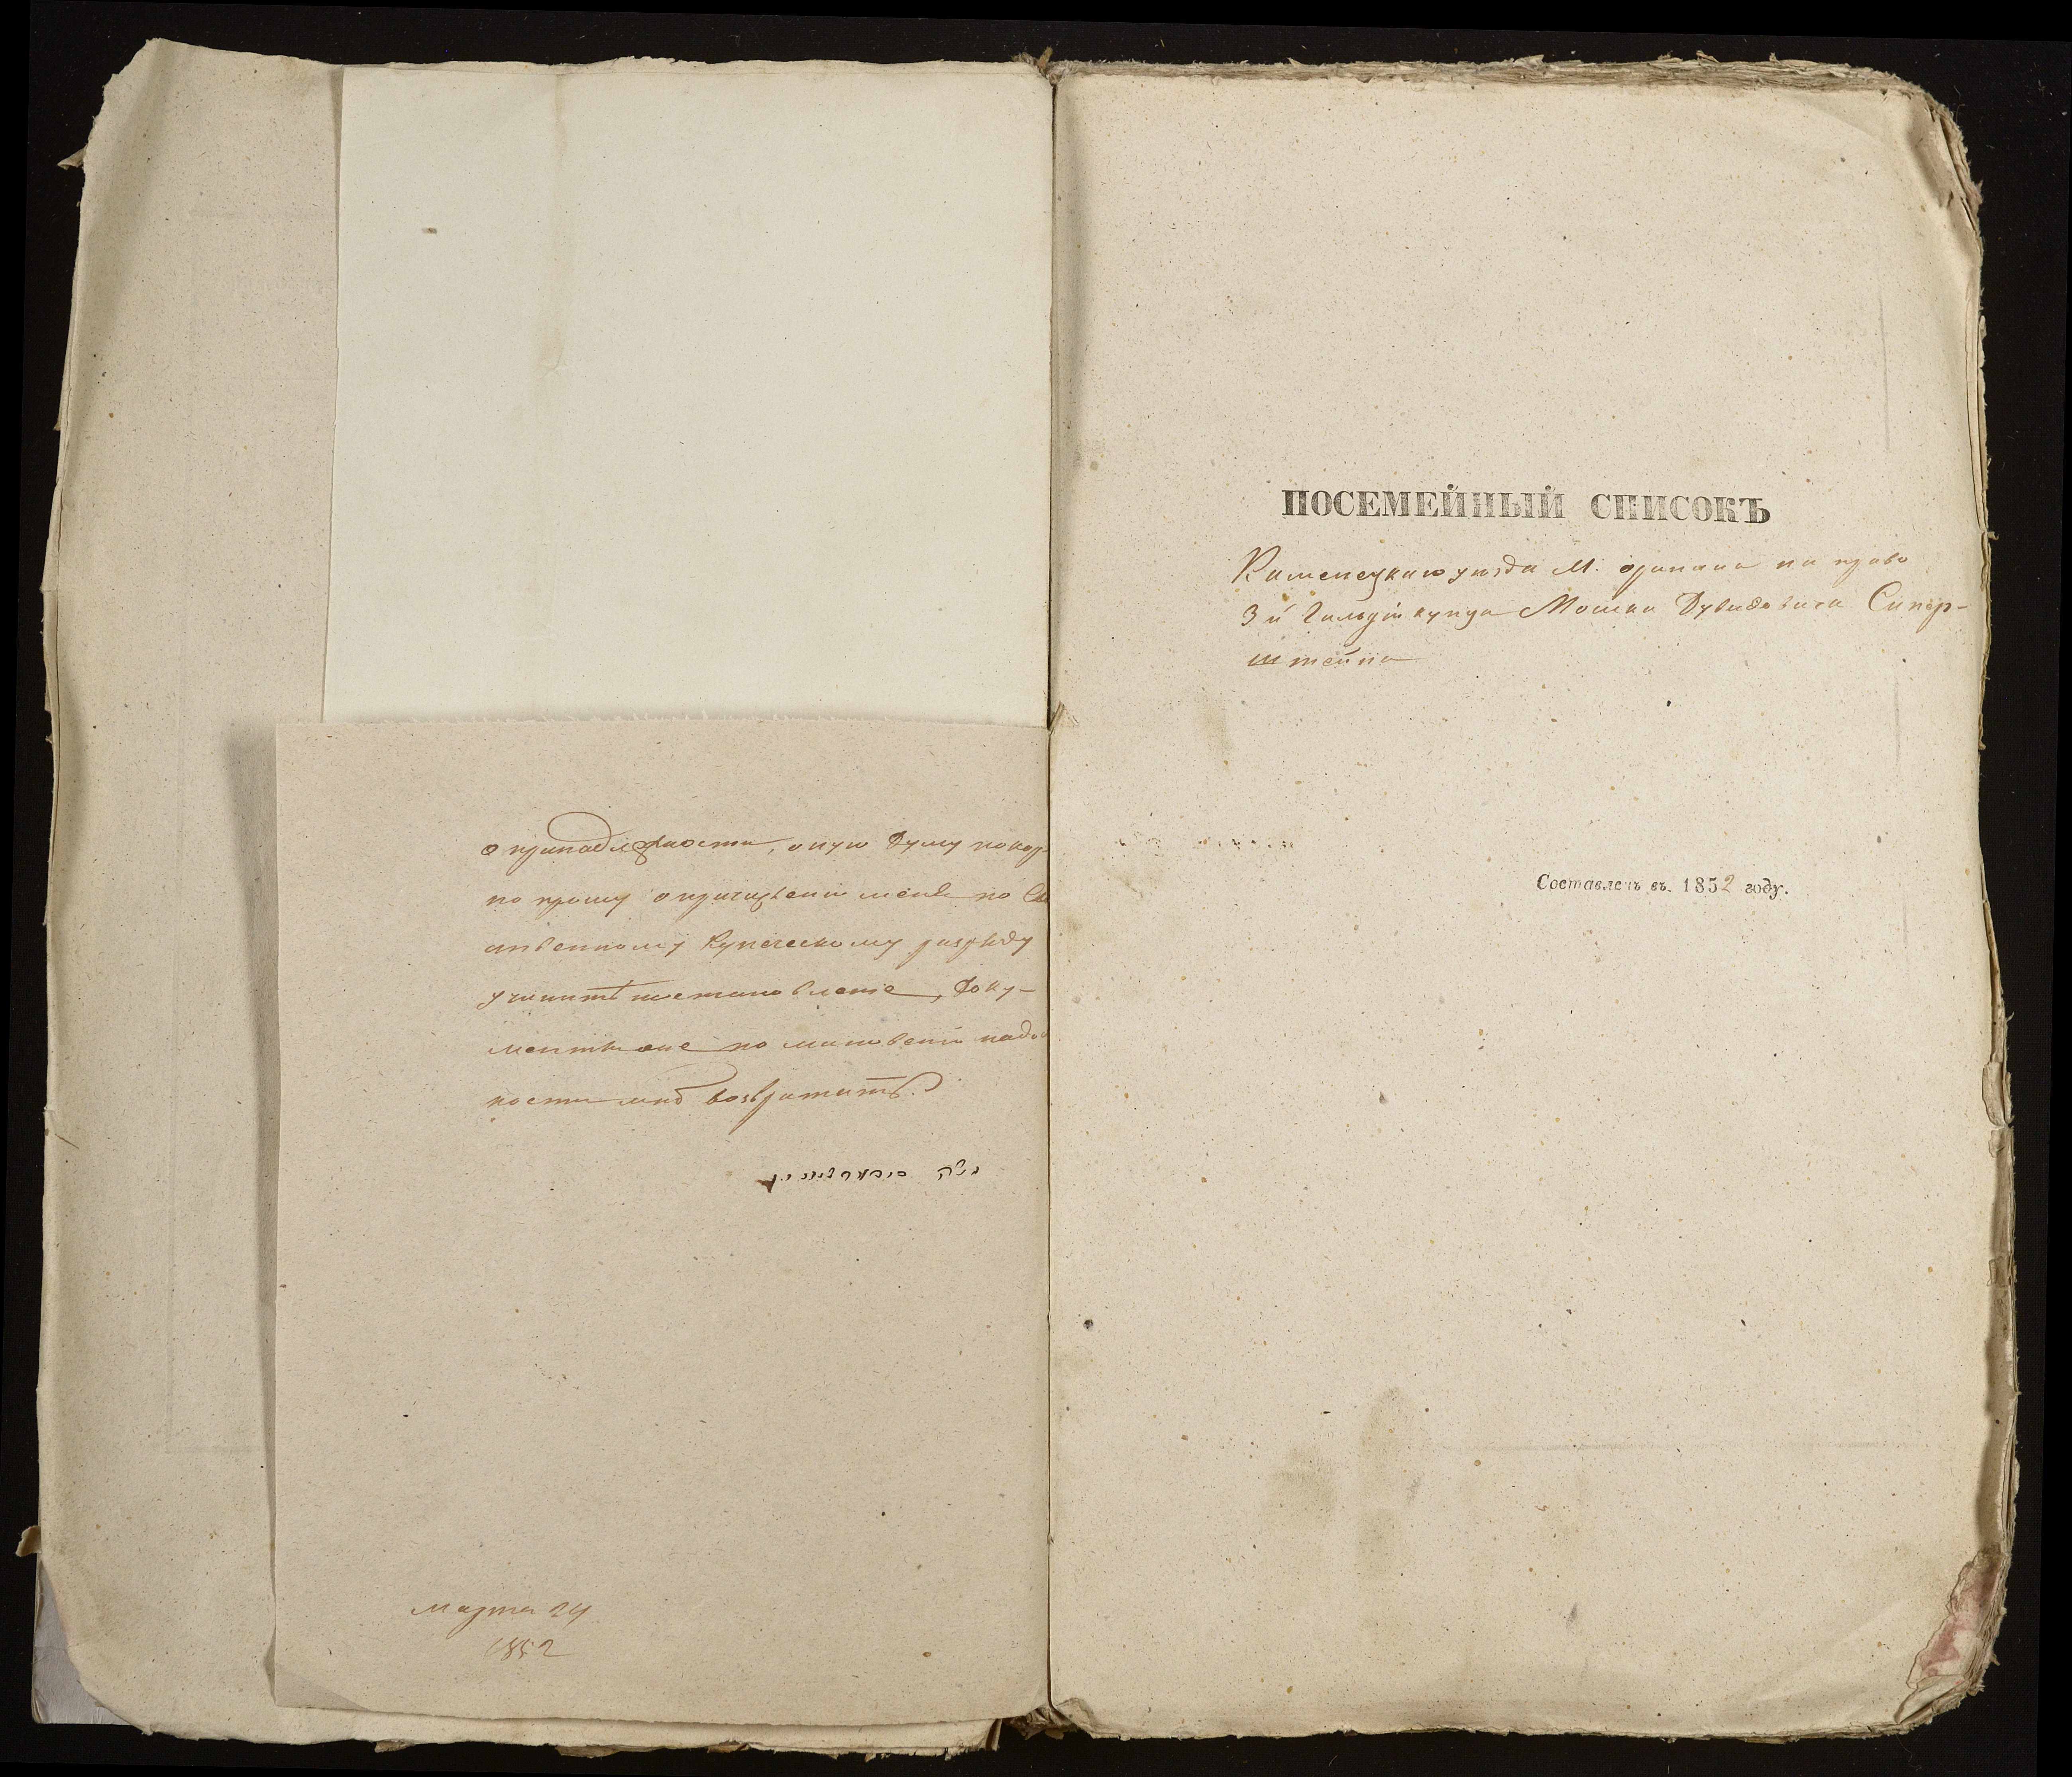 о принадлежности, оную Думу покор-
но прошу о причислении меня по Св
ственному Купеческому разряду
учинить постановление, Доку-
менты оне по миновении надоб
ности мнѣ возвратить.
Марта 24
1852
ПОСЕМЕЙНЫЙ СПИСОКЪ
Каменецкаго уѣзда М. оринина на право
3й Гильдіи купца Мошка Дувидовича Сапер-
штейна
Составленъ въ 1852 году.